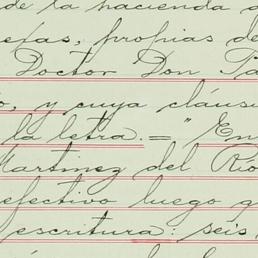 de la hacienda d
uejas, propias de
Doctor Don Pa
o, y cuya cláusu
la letra. = "En
Martinez del Río
efectivo luego q
escritura: seis